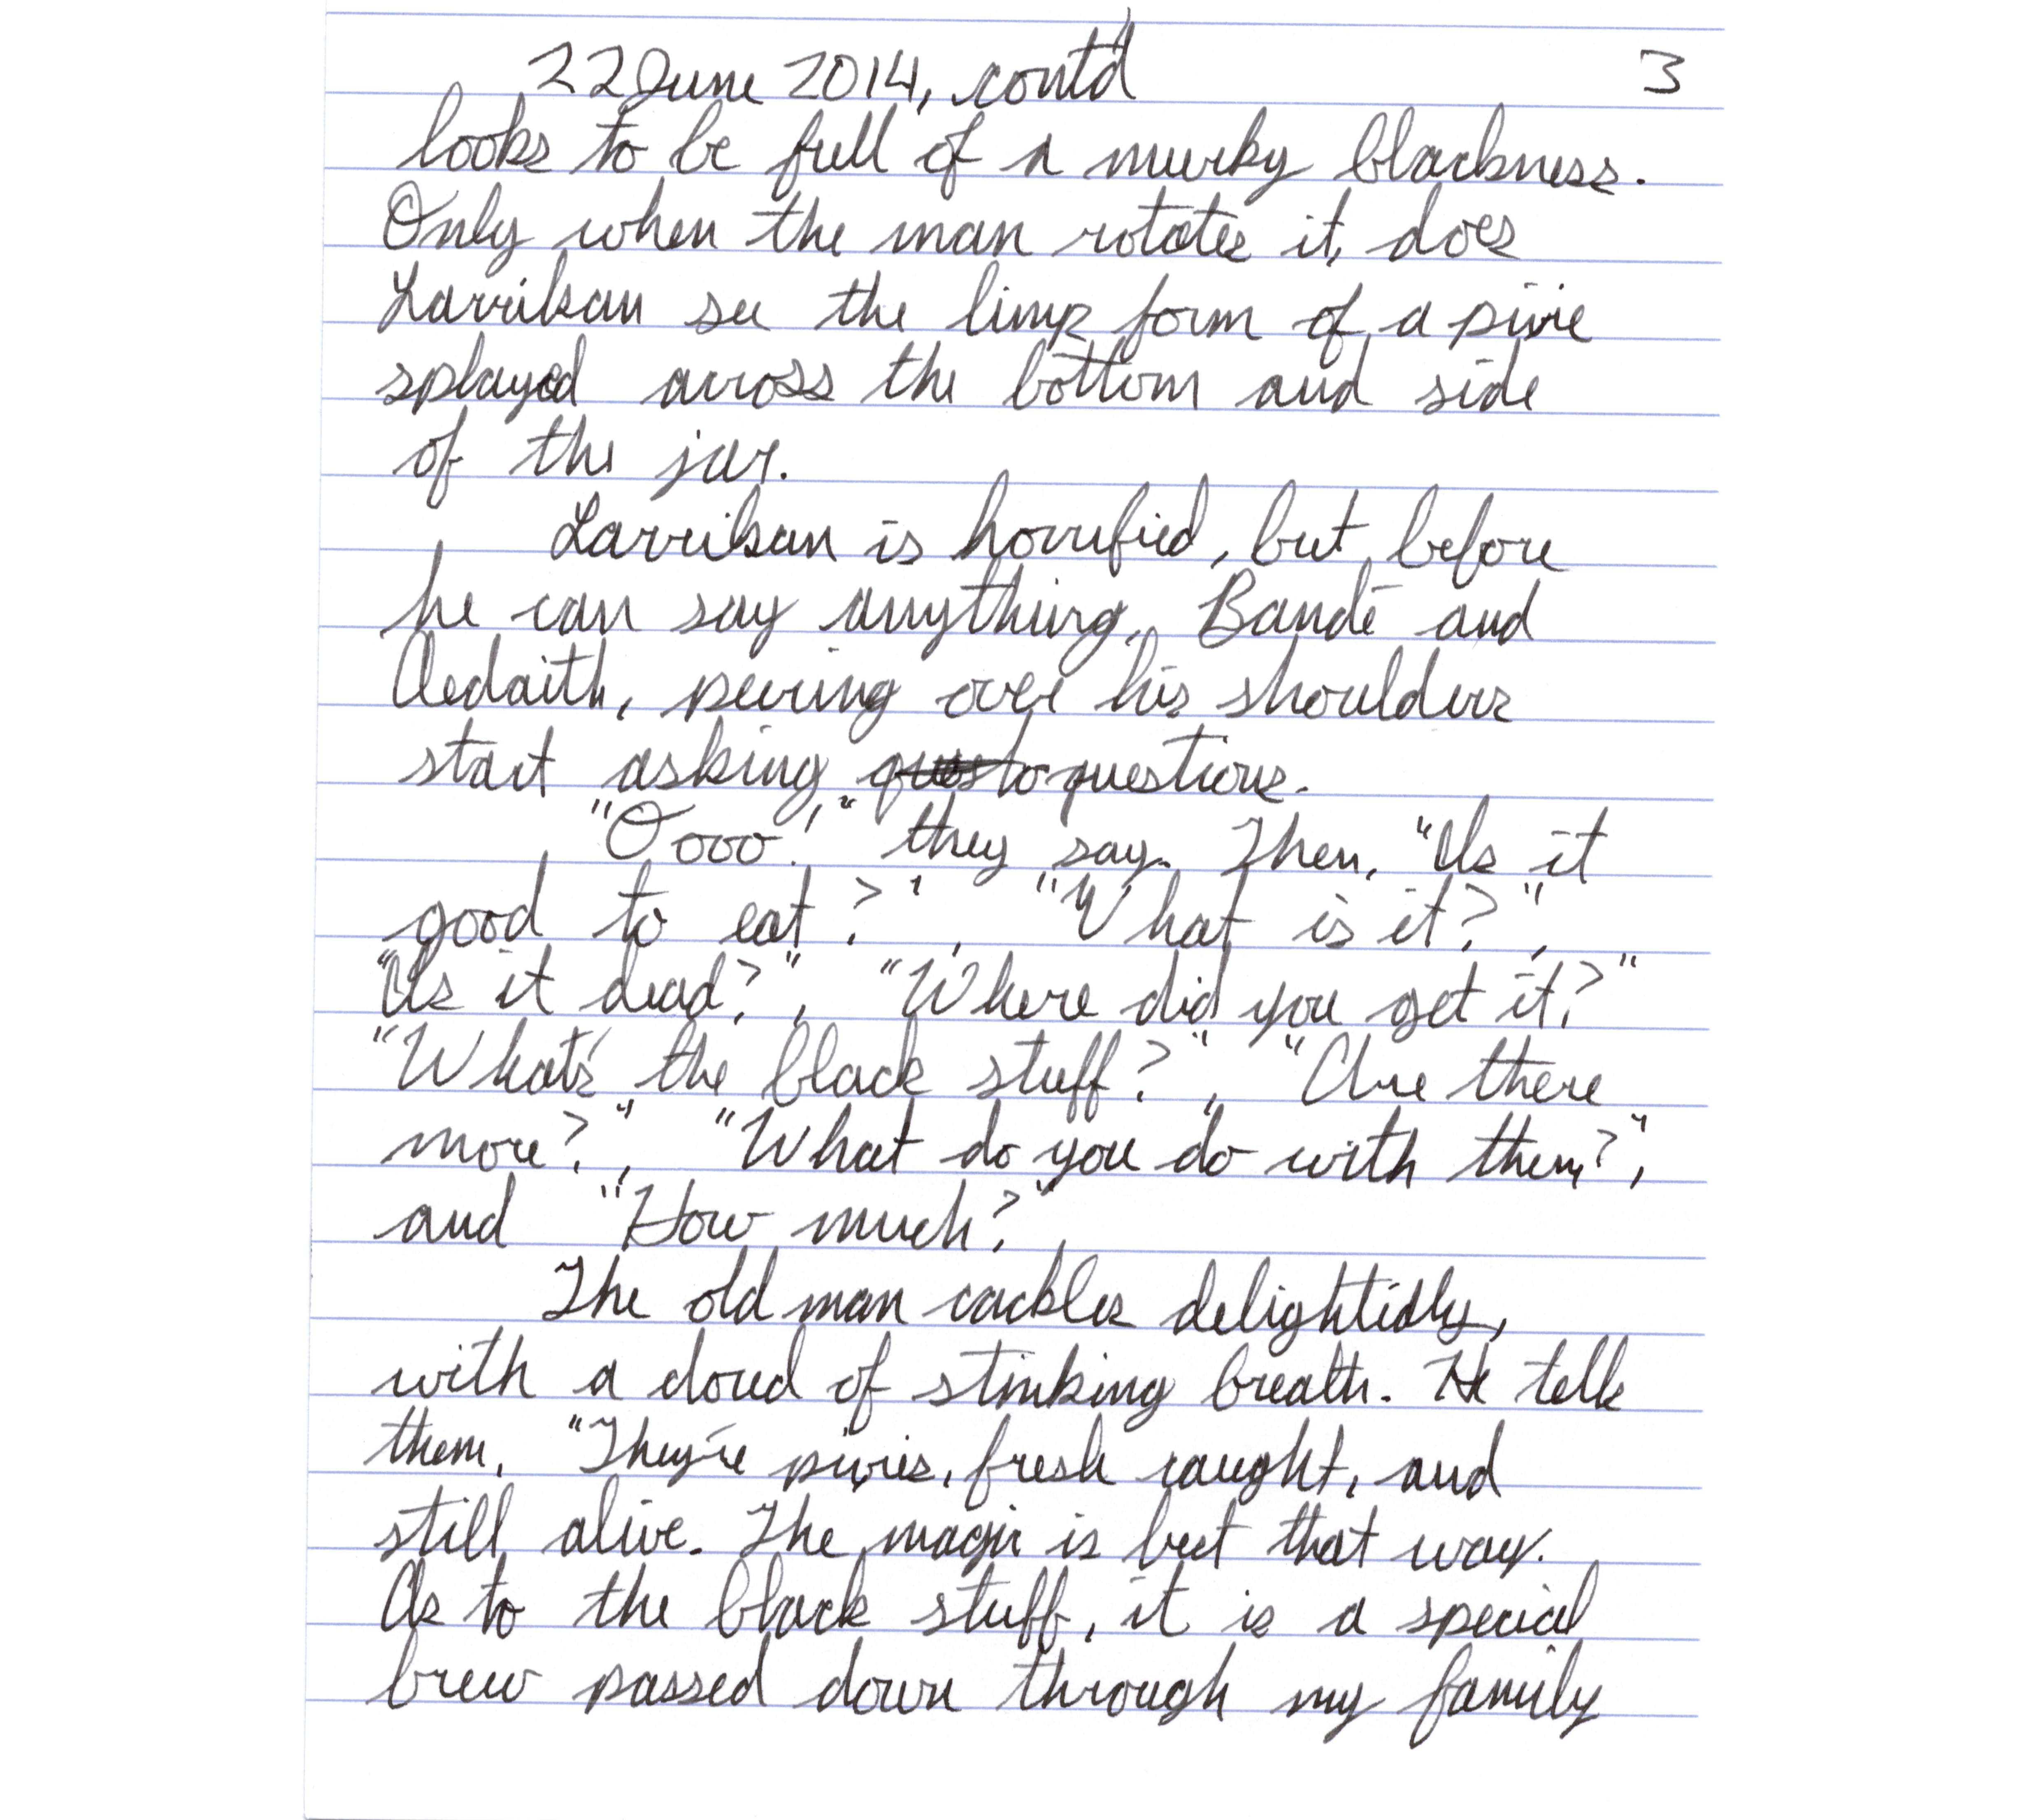 22 June 2014, contd 3
looks to be full of a murky blackness.
Only when the man rotates it, does
Larrikan see the limp form of a pixie
splayed across the bottom and side
of the jar.
Larrikan is horrified, but before
he can say anything, Bandé and
Aedaith, peering over his shoulders
start asking questo questions.
"Oooo!" they say. Then, "Is it
good to eat?", "What is it?",
"Is it dead?", "Where did you get it?"
"What's the black stuff?", "Are there
more?", "What do you do with them?",
and "How much?"
The old man cackles delightidly,
with a cloud of stinking breath. He tells
them, "They're pixies, fresh caught, and
still alive. The magic is best that way.
As to the black stuff, it is a special
brew passed down through my family